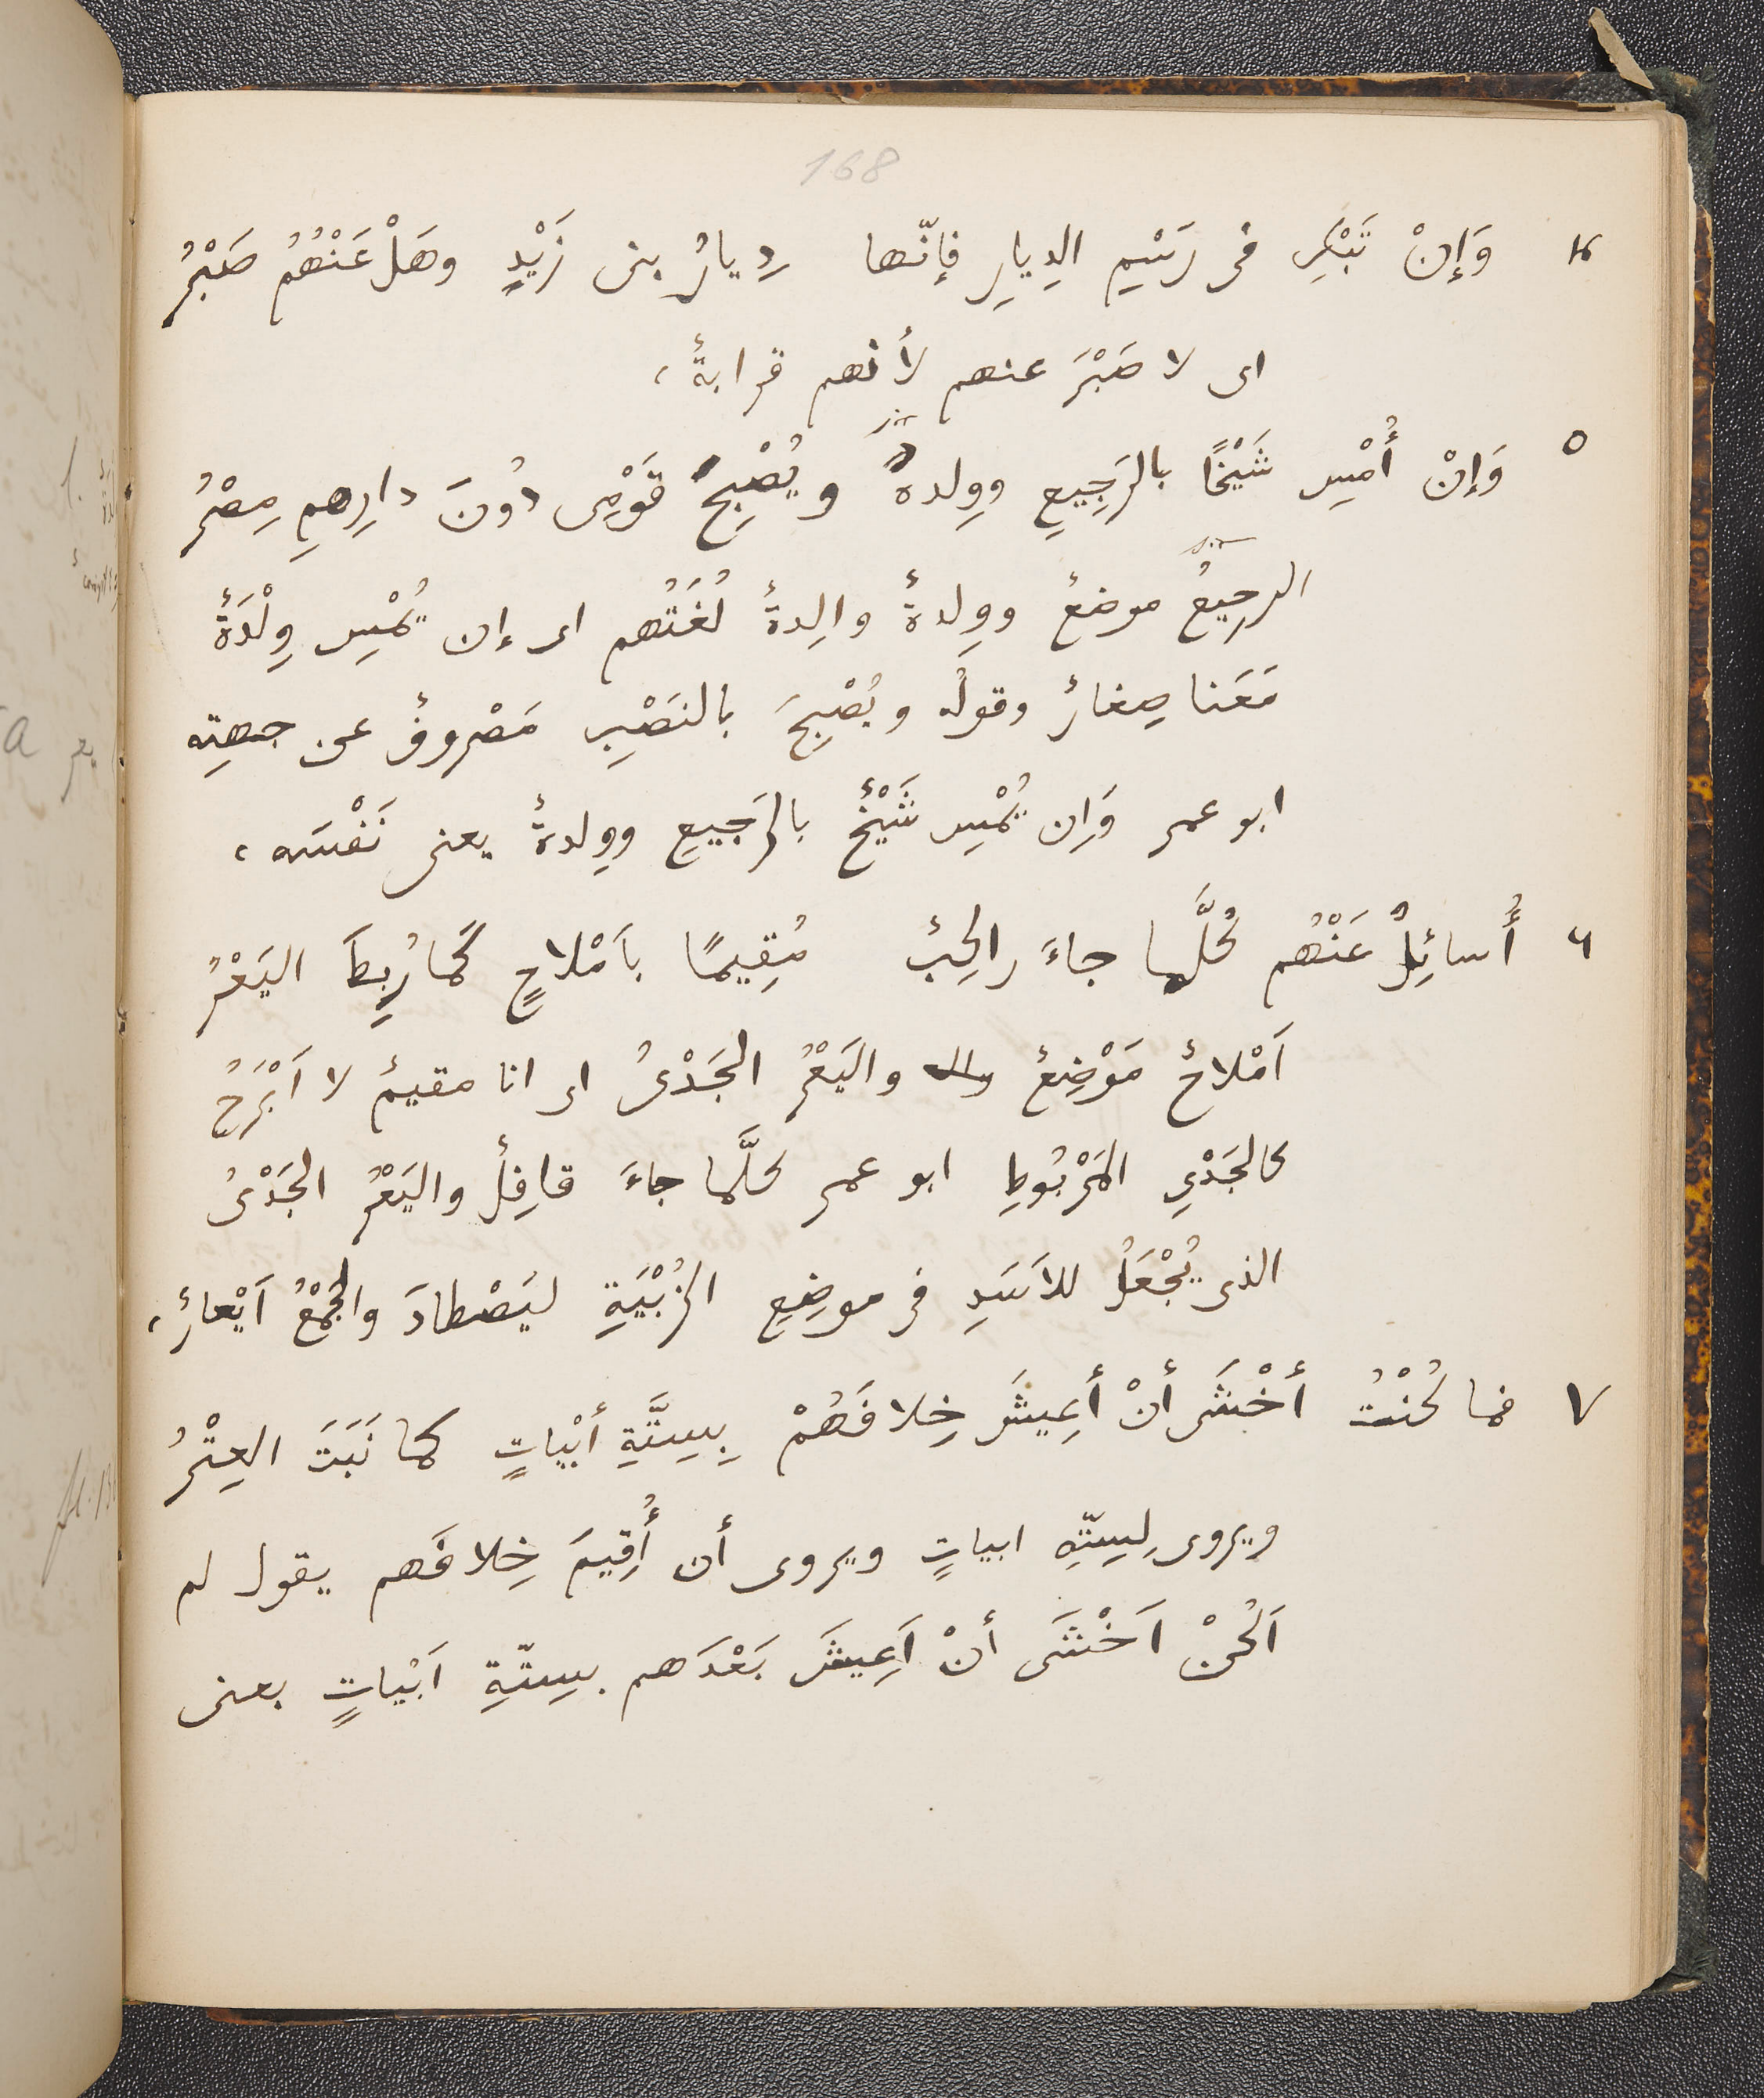 168
٤ وَإِنْ تَبْكِ فى رَسْمِ الدِيارِ فإنّها دِيارُ بنى زَيْدٍ وهَلْ عَنْهُمُ صَبْرُ
اى لا صَبْرَ عنهم لأنهم قرابةٌ،
٥ وَإنْ أُمْسِ شَيْخًا بالرَجِيعِ ووِلدةٌ ويُصْبِحَ قَوْمِى دُونَ دارِهمِ مِصْرُ
الرجِيعُ موضعٌ ووِلدةٌ والِدةٌ لُغَتُهم اى إن يُمْسِ وِلْدَةٌ
مَعَنا صِغارٌ وقولُه ويُصْبِحَ بالنَصْبِ مَصْروفٌ عن جهتِه
ابو عمرو وَإن يُمْسِ شَيْخٌ بالرَجيعِ ووِلدةٌ يعنى نَفْسَه،
٦ أُسائِلُ عَنْهُم كُلَّما جاءَ راكِبٌ مُقِيمًا بأَمْلاحٍ كَما رُبِطَ اليَعْرُ
اَمْلاحٌ مَوْضِعٌ واليَعْرُ الجَدْىُ اى انا مقيمٌ لا اَبْرَحُ
كالجَدْىِ المَرْبُوطِ ابو عمرو كلَّما جاءَ قافِلٌ واليَعْرُ الجَدْىُ
الذى يُجْعَلُ للاَسَدِ فى موضِعِ الزُبْيَةِ ليَصْطادَ والجَمْعُ اَيْعارٌ،
٧ فما كُنْتُ أخْشَى أنْ أعِيشَ خِلافَهُمْ بِسِتَّةِ أبْياتٍ كما نَبَتَ العِتْرُ
ويروى لِسِتّةِ ابياتٍ ويروى أن أُقِيمَ خِلافَهم يقول لم
اَكُنْ اَخْشَى أنْ اَعِيشَ بَعْدَهم بسِتّةِ اَبْياتٍ بعنى